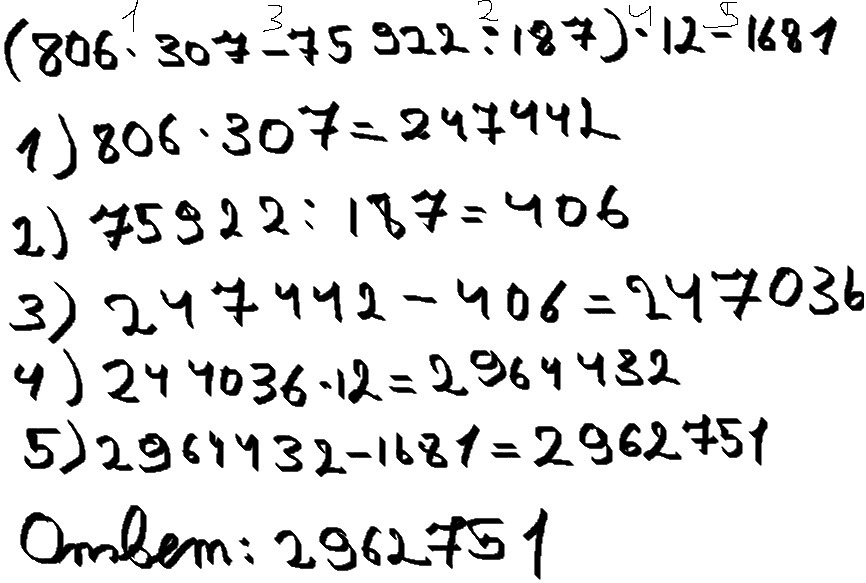 1 3 2 4 5
(806·307-75922:187)·12-1681
1) 806·307=247442
2) 75922:187=406
3) 247442-406=247036
4) 244036·12=2964432
5) 2964432-1681=2962751
Ответ: 2962751